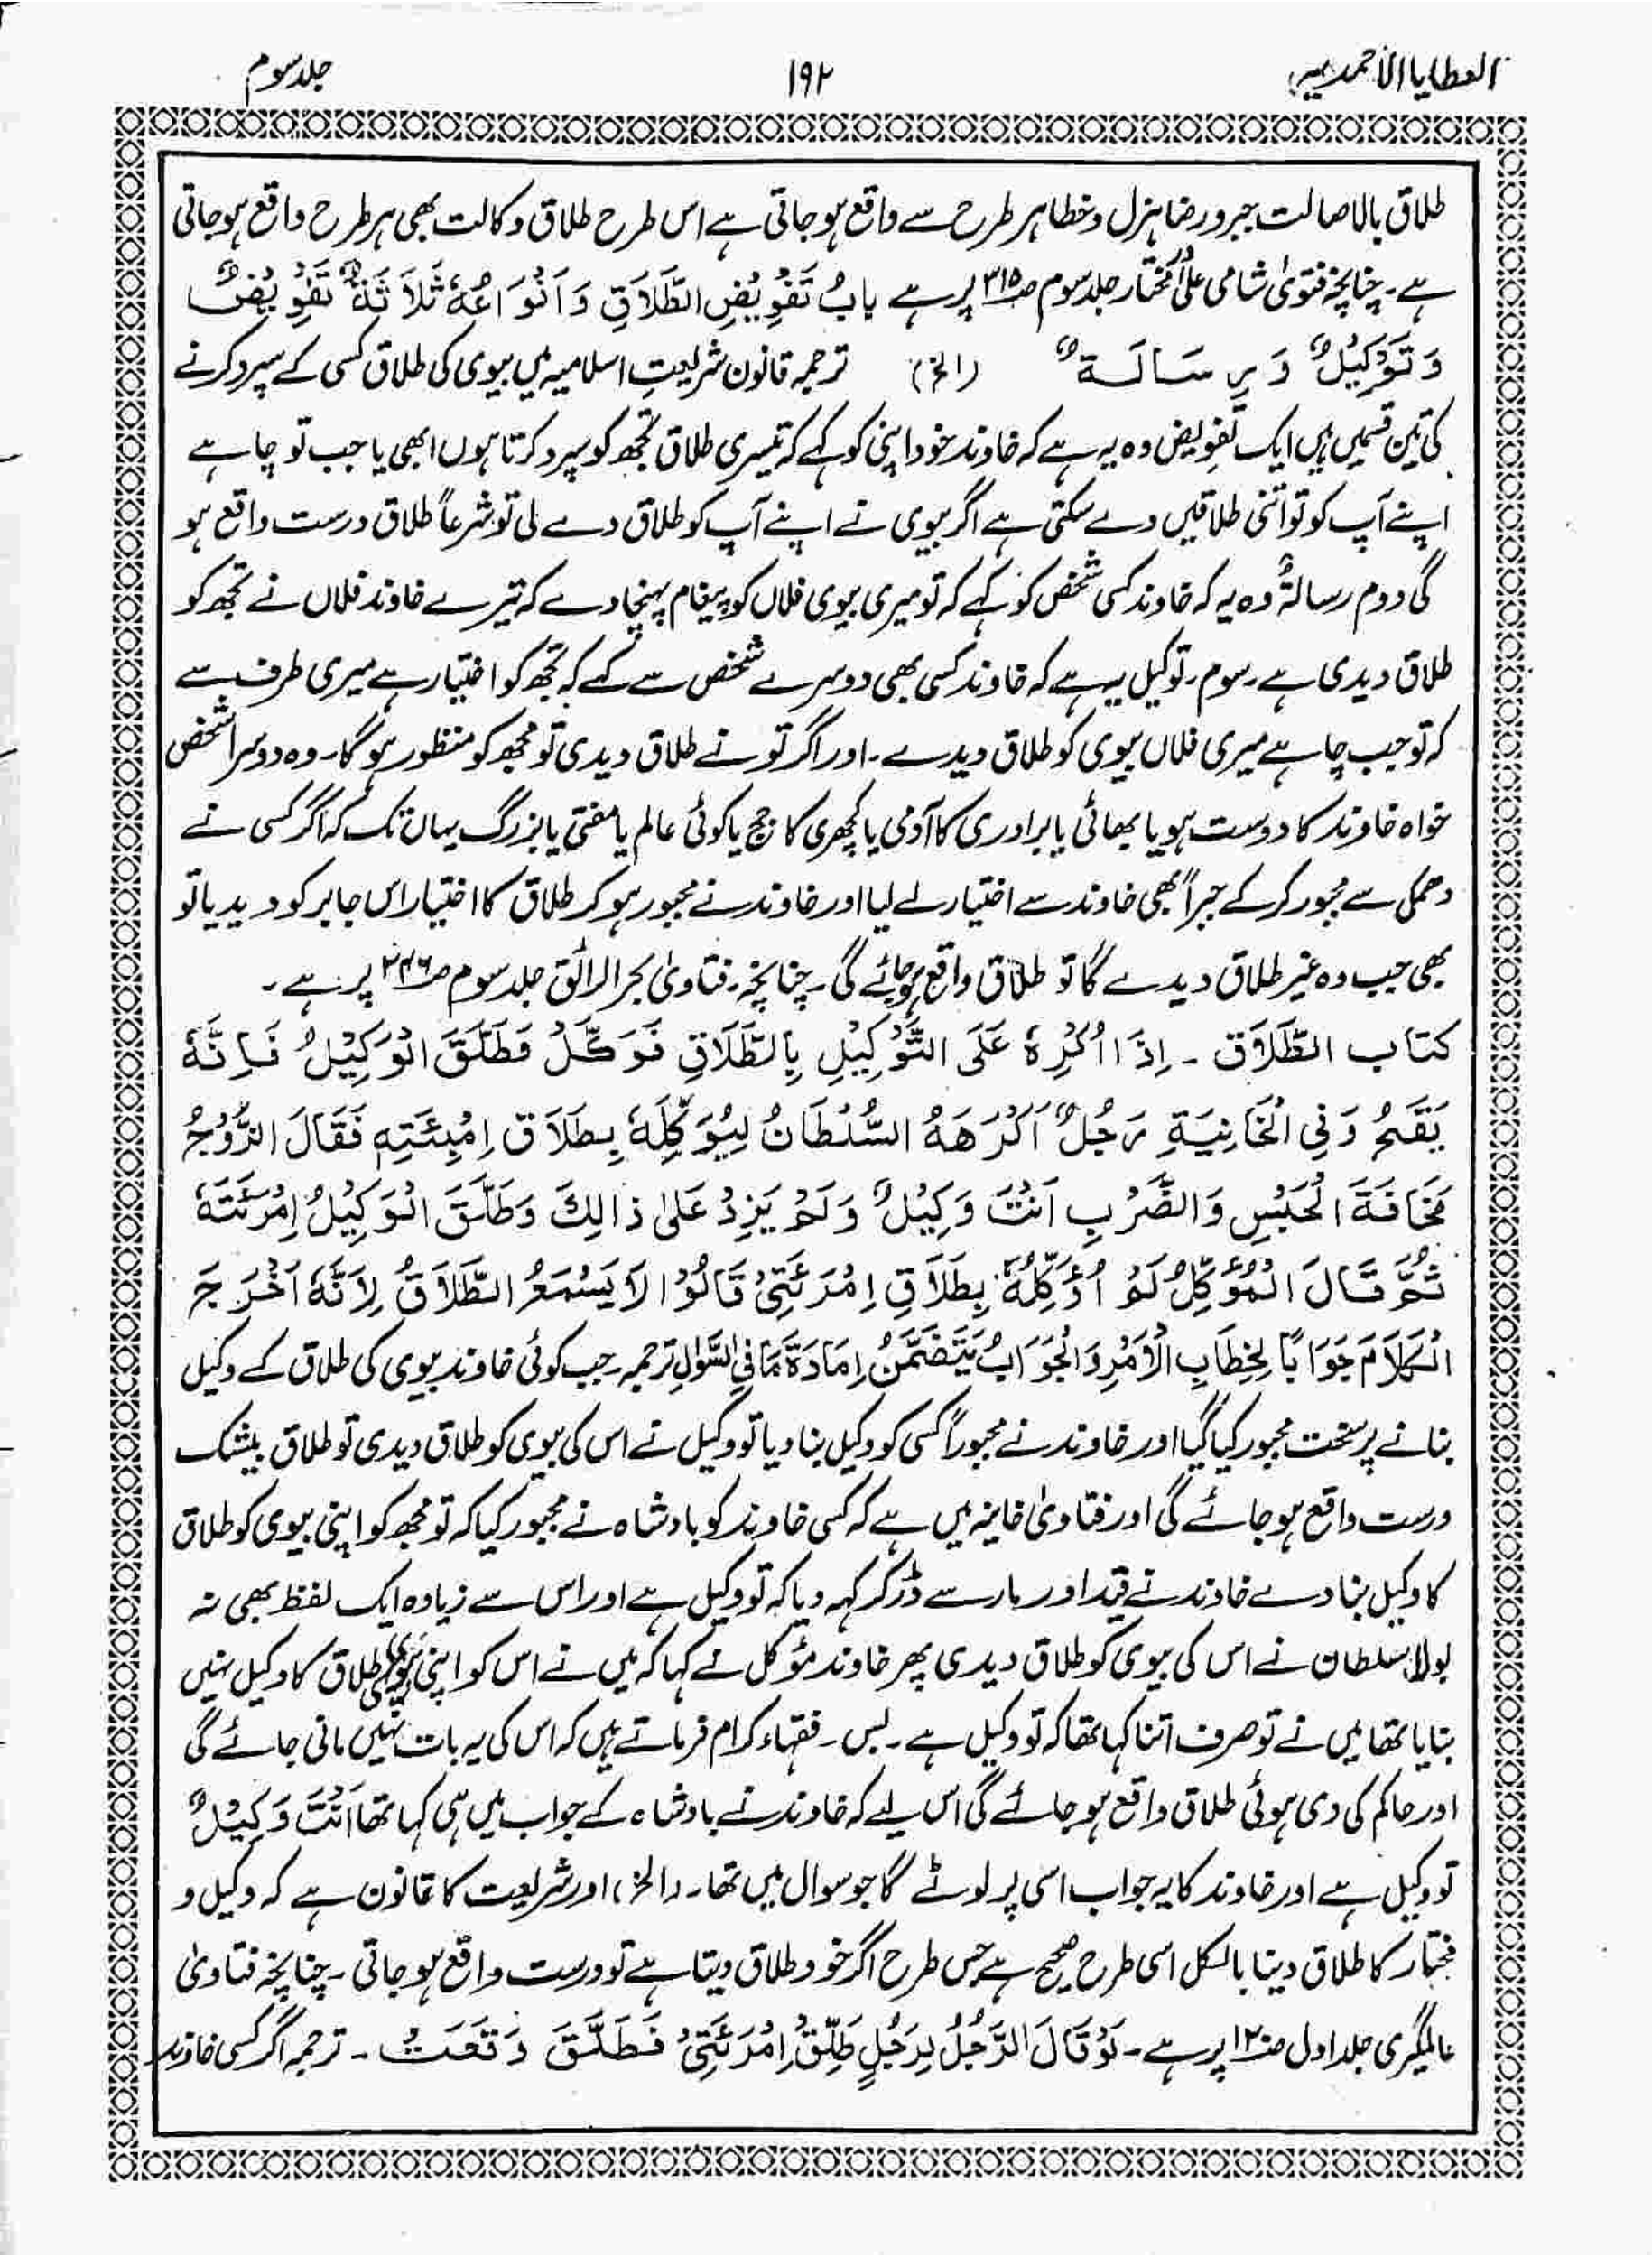 العطایا الاحمدیہ ۱۹۲ جلد سوم
طلاق بالاصالت جبر و رضا ہزل و خطا ہر طرح سے واقع ہو جاتی ہے اس طرح طلاق وکالت بھی ہر طرح واقع ہو جاتی
ہے۔ چنانچہ فتویٰ شامی علی در مختار جلد سوم صـ۳۱۵ پر ہے بابُ تَفْوِیْضِ الطَّلَاقِ وَاَنْوَاعُہٗ ثَلَاثَۃٌ تَفْوِیْضٌ
وَ تَوْکِیْلٌ وَ رِسَالَۃٌ (الخ) ترجمہ قانون شریعتِ اسلامیہ میں بیوی کی طلاق کسی کے سپرد کرنے
کی تین قسمیں ہیں ایک تفویض وہ یہ ہے کہ خاوند خود اپنی کو کہے کہ تیری طلاق تجھ کو سپرد کرتا ہوں ابھی یا جب تو چاہے
اپنے آپ کو تو اتنی طلاقیں دے سکتی ہے اگر بیوی نے اپنے آپ کو طلاق دے لی تو شرعاً طلاق درست واقع ہو
گی دوم رسالۃٌ وہ یہ کہ خاوند کسی شخص کو کہے کہ تو میری بیوی فلاں کو پیغام پہنچا دے کہ تیرے خاوند فلاں نے تجھ کو
طلاق دیدی ہے۔ سوم۔ توکیل یہ ہے کہ خاوند کسی بھی دوسرے شخص سے کہے کہ تجھ کو اختیار ہے میری طرف سے
کہ تو جب چاہے میری فلاں بیوی کو طلاق دیدے۔ اور اگر تو نے طلاق دیدی تو مجھ کو منظور ہو گا۔ وہ دوسرا شخص
خواہ خاوند کا دوست ہو یا بھائی یا برادری کا آدمی یا کچھری کا جج یا کوئی عالم یا مفتی یا بزرگ یہاں تک کہ اگر کسی نے
دھمکی سے مجبور کر کے جبراً بھی خاوند سے اختیار لے لیا اور خاوند نے مجبور ہو کر طلاق کا اختیار اس جابر کو دیدیا تو
بھی جب وہ غیر طلاق دیدے گا تو طلاق واقع ہو جائے گی۔ چنانچہ۔ فتاویٰ بحر الرائق جلد سوم صـ۲۴۶ پر ہے۔
کتاب الطَّلَاق ۔ اِذَا اُکْرِہَ عَلَی التَّوْکِیْلِ بِالطَّلَاقِ فَوَکَّلَ فَطَلَّقَ الْوَکِیْلُ فَاِنَّہٗ
یَقَعُ وَفِی الْخَانِیَۃِ رَجُلٌ اَکْرَھَہُ السُّلْطَانُ لِیُوَکِّلَہٗ بِطَلَاقِ اِمْرِئَتِہٖ فَقَالَ الزَّوْجُ
مَخَافَۃَ الْحَبْسِ وَالضَّرْبِ اَنْتَ وَکِیْلٌ وَلَمْ یَزِدْ عَلیٰ ذَالِکَ وَطَلَّقَ الْوَکِیْلُ اِمْرَئَتَہٗ
ثُمَّ قَالَ الْمُؤَکِّلُ لَمْ اُؤَکِّلْہُ بِطَلَاقِ اِمْرَئَتِیْ قَالُوْا لَا یَسْمَعُ الطَّلَاقُ لِاَنَّہٗ اَخْرَجَ
الْکَلَامَ جَوَابًا لِخِطَابِ الْاَمْرِ وَالْجَوَابُ یَتَضَمَّنُ اِعَادَۃَ مَا فِی السَّوَالِ ترجمہ۔ جب کوئی خاوند بیوی کی طلاق کے وکیل
بنانے پر سخت مجبور کیا گیا اور خاوند نے مجبوراً کسی کو وکیل بنا دیا تو وکیل نے اس کی بیوی کو طلاق دیدی تو طلاق بیشک
درست واقع ہو جائے گی اور فتاویٰ خانیہ میں ہے کہ کسی خاوند کو بادشاہ نے مجبور کیا کہ تو مجھ کو اپنی بیوی کو طلاق
کا وکیل بنا دے خاوند نے قید اور مار سے ڈر کر کہہ دیا کہ تو وکیل ہے اور اس سے زیادہ ایک لفظ بھی نہ
بولا۔ سلطان نے اس کی بیوی کو طلاق دیدی پھر خاوند مؤکل نے کہا کہ میں نے اس کو اپنی بیوی کی طلاق کا وکیل نہیں
بنایا تھا میں نے تو صرف اتنا کہا تھا کہ تو وکیل ہے۔ بس۔ فقہاء کرام فرماتے ہیں کہ اس کی یہ بات نہیں مانی جائے گی
اور حاکم کی دی ہوئی طلاق واقع ہو جائے گی اس لیے کہ خاوند نے بادشاہ کے جواب میں ہی کہا تھا اَنْتَ وَکِیْلٌ
تو وکیل ہے اور خاوند کا یہ جواب اسی پر لوٹے گا جو سوال میں تھا۔ (الخ) اور شریعت کا قانون ہے کہ وکیل و
مختار کا طلاق دینا بالکل اسی طرح صحیح ہے جس طرح اگر خود طلاق دیتا ہے تو درست واقع ہو جاتی۔ چنانچہ فتاویٰ
عالمگیری جلد اول صـ۱۲ پر ہے۔ لَوْ قَالَ الرَّجُلُ لِرَجُلٍ طَلِّقْ اِمْرَئَتِیْ فَطَلَّقَ وَقَعَتْ ۔ ترجمہ اگر کسی خاوند